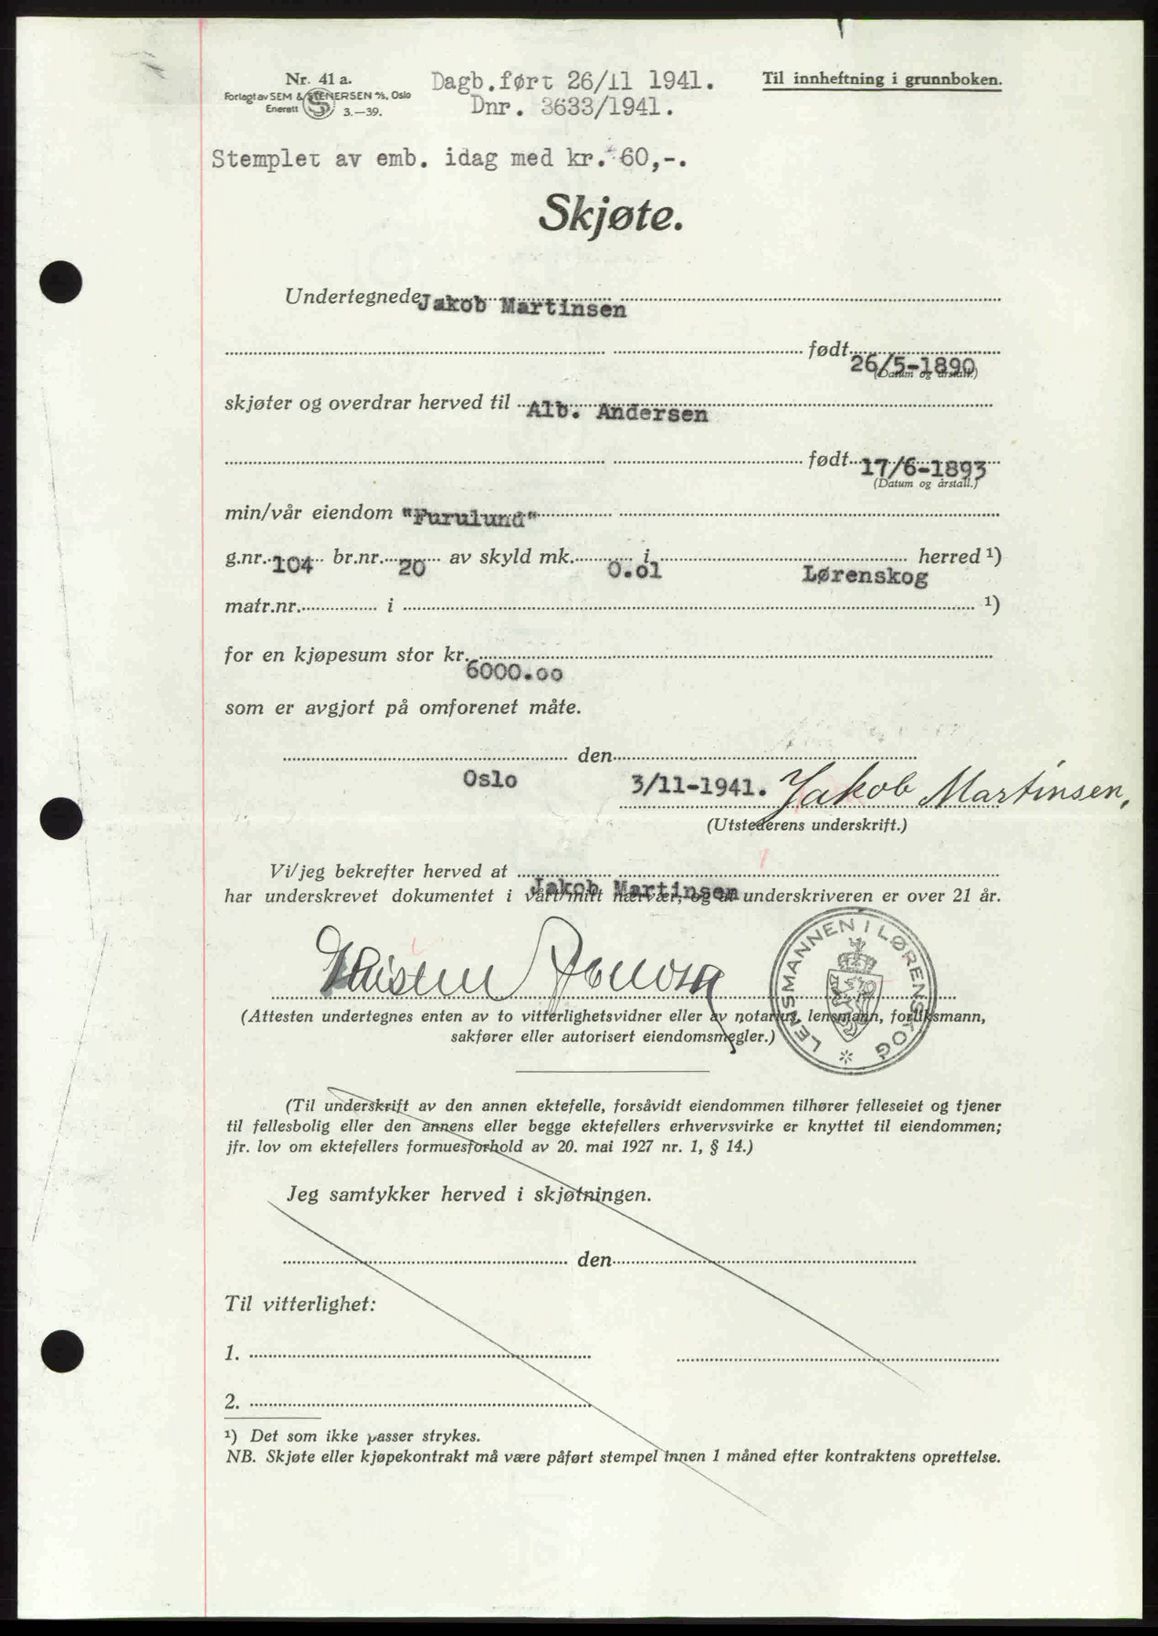 Nr. 41 a.
Forlagt av SEM & STENERSEN A/S, Oslo
Enerett S 3.—39.
Dagb.ført 26/11 1941.
Dnr. 3633/1941.
Til innheftning i grunnboken.
Stemplet av emb. idag med kr. 60,-.
Skjøte.
Undertegnede Jakob Martinsen
født 26/5-1890
(Datum og årstall.)
skjøter og overdrar herved til Alb. Andersen
født 17/6-1893
(Datum og årstall.)
min/vår eiendom "Furulund"
g.nr. 104 br.nr. 20 av skyld mk. 0.01 i Lørenskog herred ¹)
matr.nr. i ¹)
for en kjøpesum stor kr. 6000.00
som er avgjort på omforenet måte.
Oslo den 3/11-1941. Jakob Martinsen,
(Utstederens underskrift.)
Vi/jeg bekrefter herved at Jakob Martinsen
har underskrevet dokumentet i vårt/mitt nærvær, og at underskriveren er over 21 år.
LENSMANNEN I LØRENSKOG
(Attesten undertegnes enten av to vitterlighetsvidner eller av notarius, lensmann, forliksmann,
sakfører eller autorisert eiendomsmegler.)
(Til underskrift av den annen ektefelle, forsåvidt eiendommen tilhører felleseiet og tjener
til fellesbolig eller den annens eller begge ektefellers erhvervsvirke er knyttet til eiendommen;
jfr. lov om ektefellers formuesforhold av 20. mai 1927 nr. 1, § 14.)
Jeg samtykker herved i skjøtningen.
den
Til vitterlighet:
1.
2.
¹) Det som ikke passer strykes.
NB. Skjøte eller kjøpekontrakt må være påført stempel innen 1 måned efter kontraktens oprettelse.